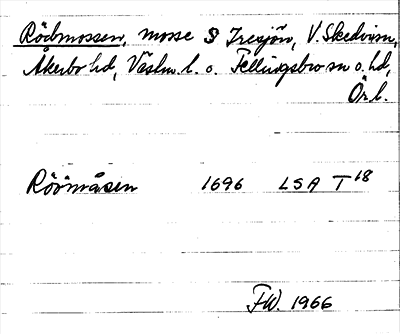 Rödmossen, mosse S Iresjön, V. Skedvi sn,
Åkerbo hd, Västm. l. o. Fellingsbro sn o. hd,
Ör. l.
Röömåsen 1696 LSA T 18
F.W. 1966